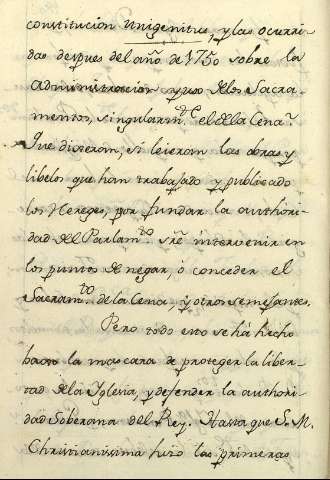 constitucion Unigenitus, y las ocurri-
das despues del año de 1750 sobre la
administracion y uso de los Sacra-
mentos, singularm.te el de la Cena.
Que dixeran, si leieran las obras y
libelos que han trabajado y publicado
los Hereges, por fundar la authori-
dad del Parlam.to sre intervenir en
los puntos de negar, ó conceder el
Sacram.to de la Cena, y otros semejantes.
Pero todo esto se há hecho
baxo la mascara de proteger la liber-
tad de la Iglesia, y defender la authori-
dad Soberana del Rey. Hasta que S. M.
Christianissima hizo las primeras